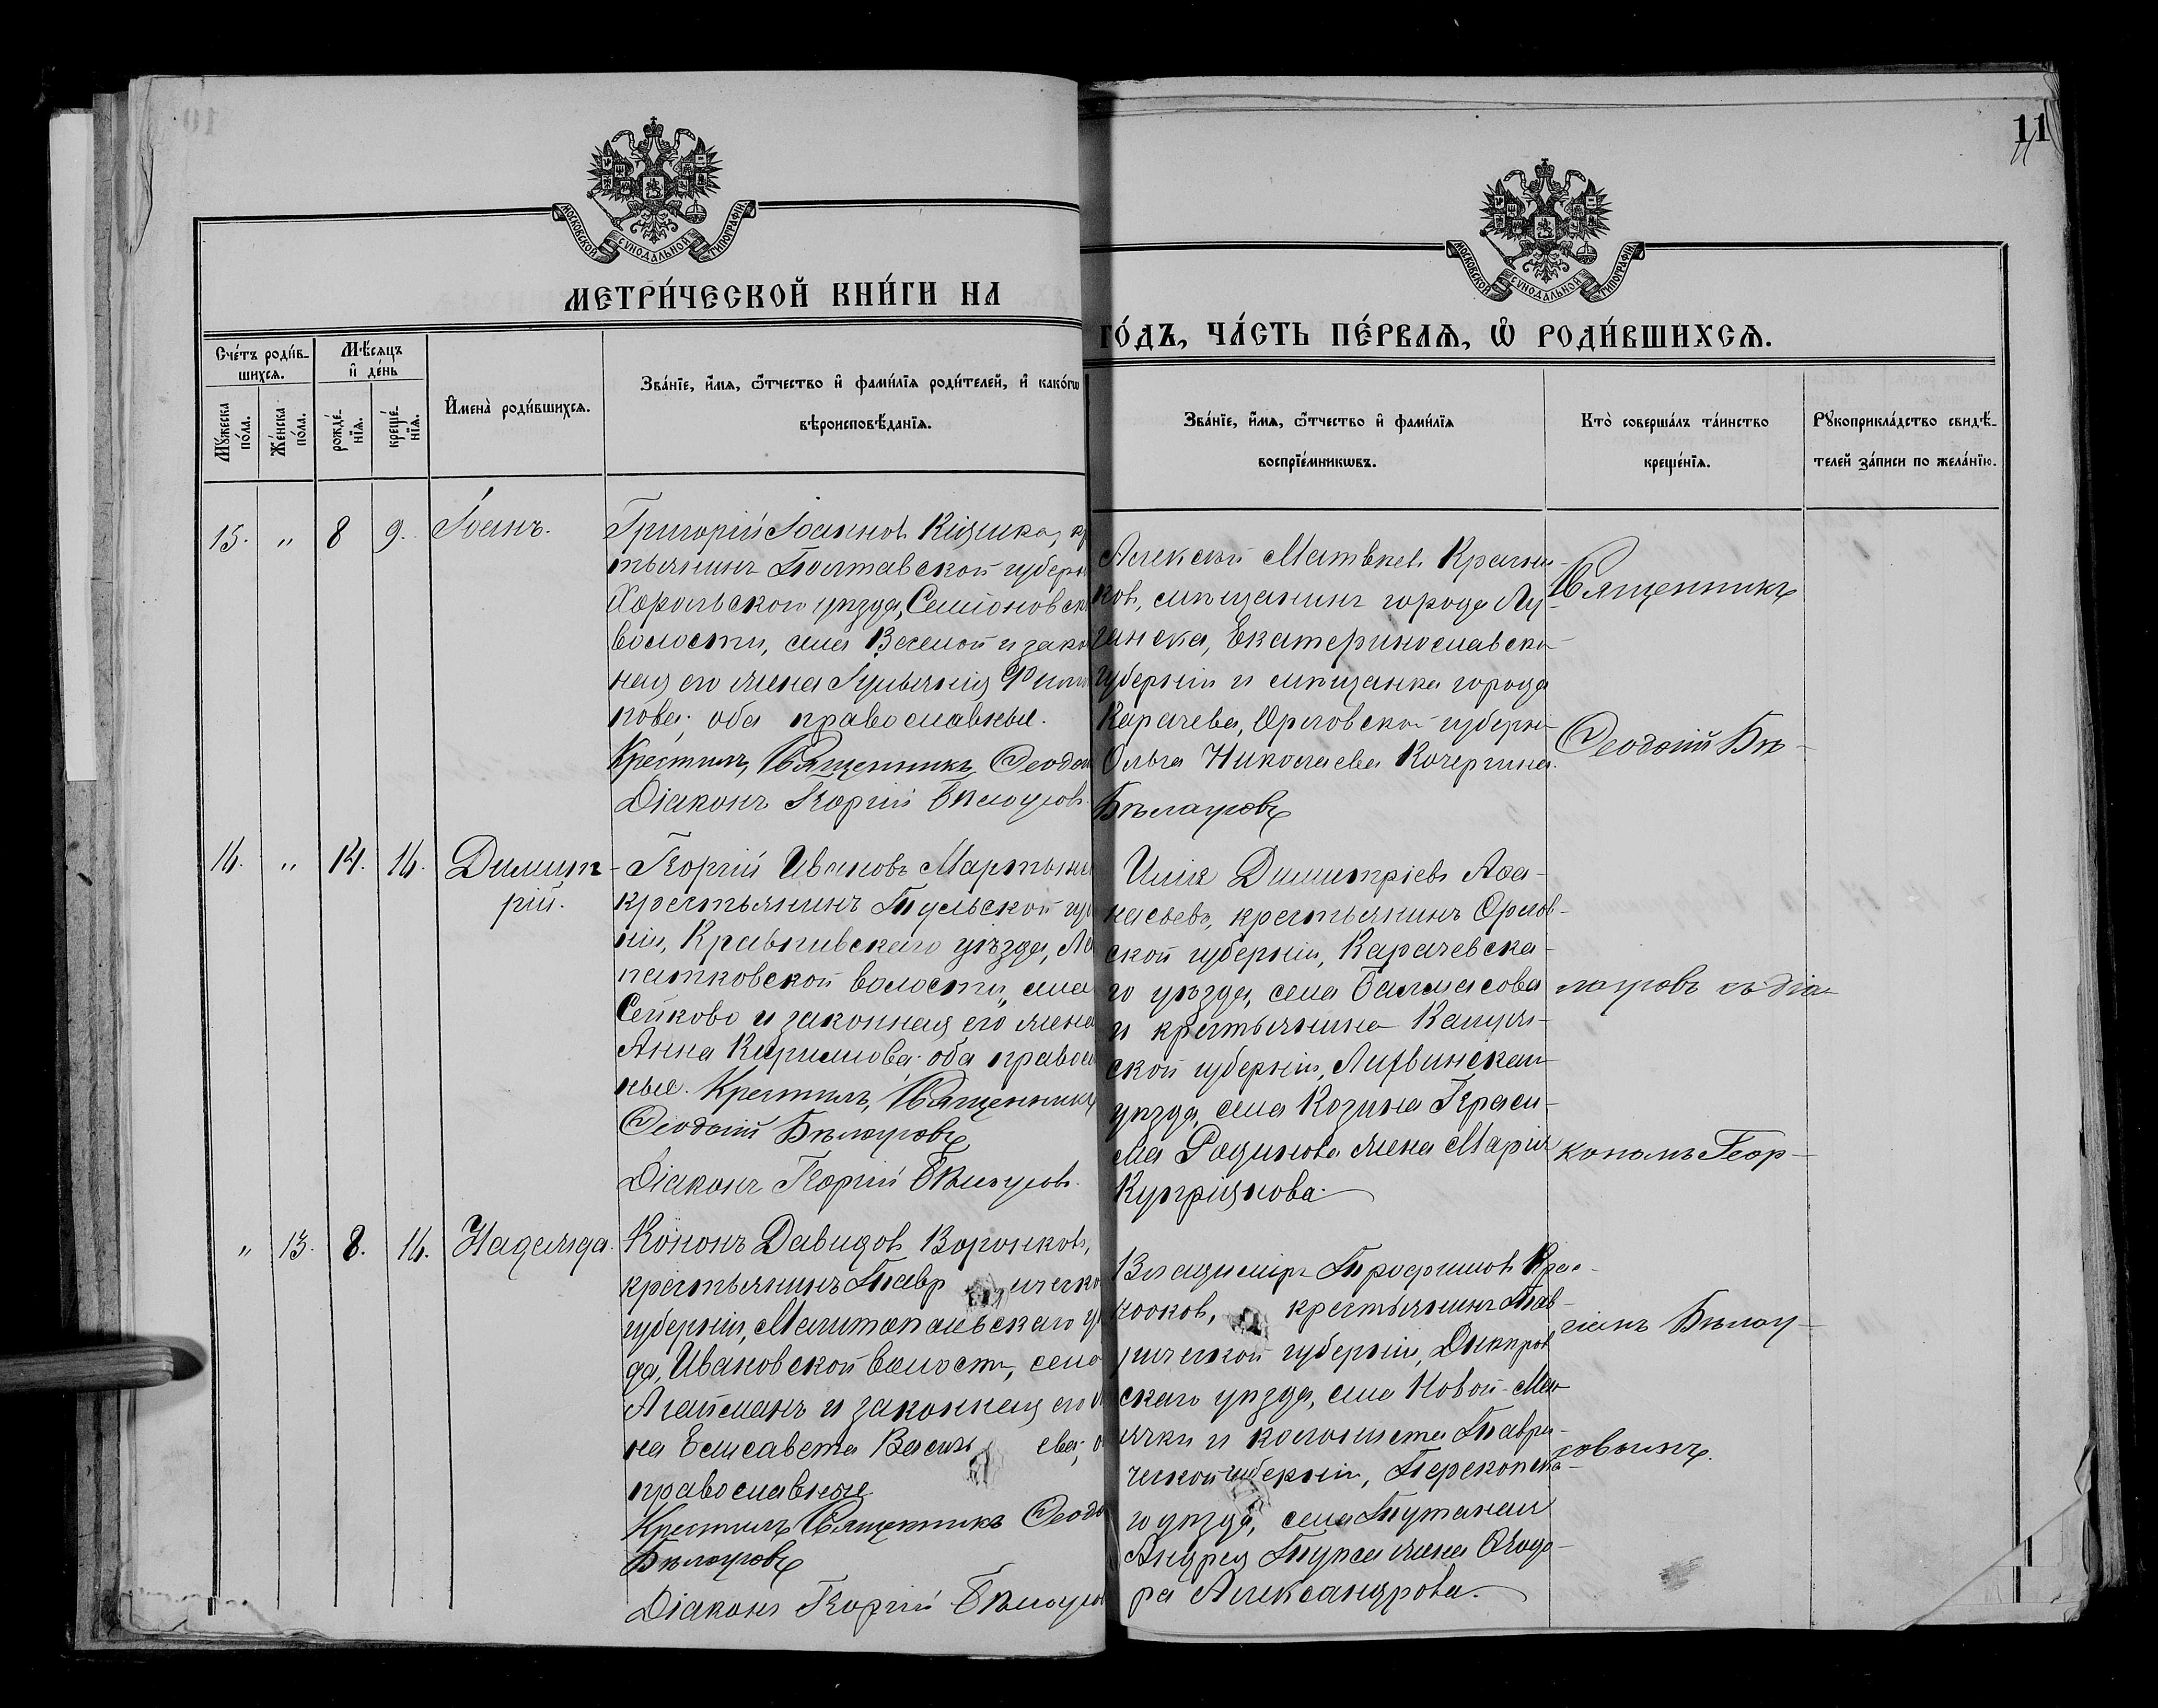 11
11
МОСКОВСКОЙ СѴНОДАЛЬНОЙ ТИПОГРАФІИ
МЕТРИ́ЧЕСКОЙ КНИ́ГИ НА
Сче́тъ роди́в-
шихсѧ.
Мѣ́сѧцъ
и҆ де́нь
Мꙋ́жеска
по́ла.
Же́нска
по́ла.
рожде́-
нїѧ.
креще́-
нїѧ.
И҆мена̀ роди́вшихсѧ.
Зва́нїе, и҆́мѧ, ѻ҆́тчество и҆ фами́лїѧ роди́телей, и҆ како́гѡ
вѣроисповѣ́данїѧ.
15. " 8 9. Іоанъ.
Григорій Іоаннов Кизика, кр
тьянинъ Полтавской губерн
Хорольскои уѣзда, Семіоновск
волости, села Веселой и зако
ная его жена
пова; оба православные.
Крестилъ, Священникъ Ѳеодо
Діаконъ Георгій Бѣлоусов.
16. " 14. 16. Димит-
рій.
Георгій Ивановъ Мартын
крестьянинъ Тульской гу
ніи, Крапивскаго уѣзда,
патковской волости, села
Сейково и законная его жена
Анна Кирилова; оба правос
ные. Крестилъ, Священникъ
Ѳеодосій Бѣлоусовъ
Діаконъ Георгій Бѣлоусов.
" 13. 8. 16. Надежда.
Кононъ Давидов Воронков,
крестьянинъ Тавр ическо
губерніи, Мелитопольскаго у
да, Ивановской волости, села
Агайманъ и законная его
на Елисавета Василь ева; о
православные.
Крестилъ Священникъ Ѳеодо
Бѣлоусовъ
Діаконъ Георгій Бѣлоусов
МОСКОВСКОЙ СѴНОДАЛЬНОЙ ТИПОГРАФІИ
ГО́ДЪ, ЧА́СТЬ ПЕ́РВАѦ, Ѡ҆ РОДИ́ВШИХСѦ.
Зва́нїе, и҆́мѧ, ѻ҆́тчество и҆ фами́лїѧ
воспрїе́мникѡвъ.
Кто̀ соверша́лъ та́инство
креще́нїѧ.
Рꙋкоприкла́дство свидѣ́-
телей за́писи по жела́нїю.
Алексѣй Матвѣев
ков, мѣщанинъ города Лу-
ганска, Екатеринославско-
губерніи и мѣщанка города
Карачева, Орловской губерн-
Ольга Николаева Кочергина.
Бѣлоусовъ
Илія Димитріевъ Аѳа-
насьевъ, крестьянинъ Орлов-
ской губерніи, Карачевска-
го уѣзда, села Балмасова
и крестьянина Калуж-
ской губерніи, Лихвинскаго
уѣзда, села Козина Гераси-
ма Родинова жена Марія
Купріянова.
Владиміръ Трофимов
крестьянинъ Тав-
рической губерніи, Днѣпров
скаго уѣзда, села Новой-Мая-
ячки и колониста Таври-
ческой губерніи, Перекопска-
го уѣзда, села
Андрея жена Ѳеодо-
ра Александрова.
Священникъ
Ѳеодосій Бѣ-
лоусовъ съ діа-
кономъ Геор-
гіемъ Бѣлоу-
совымъ.